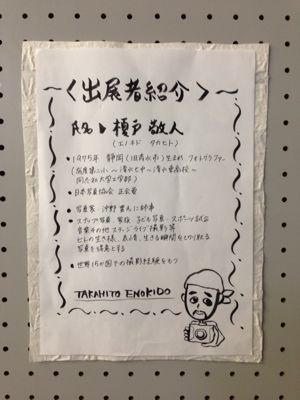 〜〈出展者紹介〉〜
氏名▶榎戸 敬人
（エノキド タカヒト）
●1975年 静岡（旧清水市）生まれ フォトグラファー
同志社大学工学部）
●日本写真協会 正会員
●写真家・沖野 豊人に師事
●スナップ写真、家族・子ども写真・スポーツ試合
音楽その他ステージライブ撮影等
ヒトの生き様、表情、生きる瞬間をとり取れる
写真を得意とする
●世界15か国での撮影経験をもつ
TAKAHITO ENOKIDO